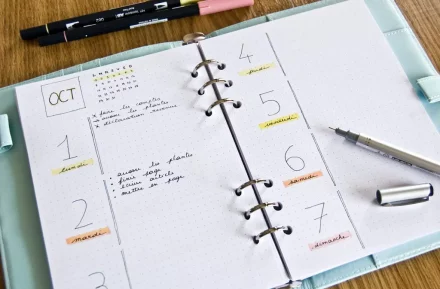 OCT
x faire les comptes
x arroser les plantes
x déclaration revenus
1
lundi
• arroser les plantes
• faire page
• écrire article
• mettre en page
2
mardi
3
4
jeudi
5
vendredi
6
samedi
7
dimanche